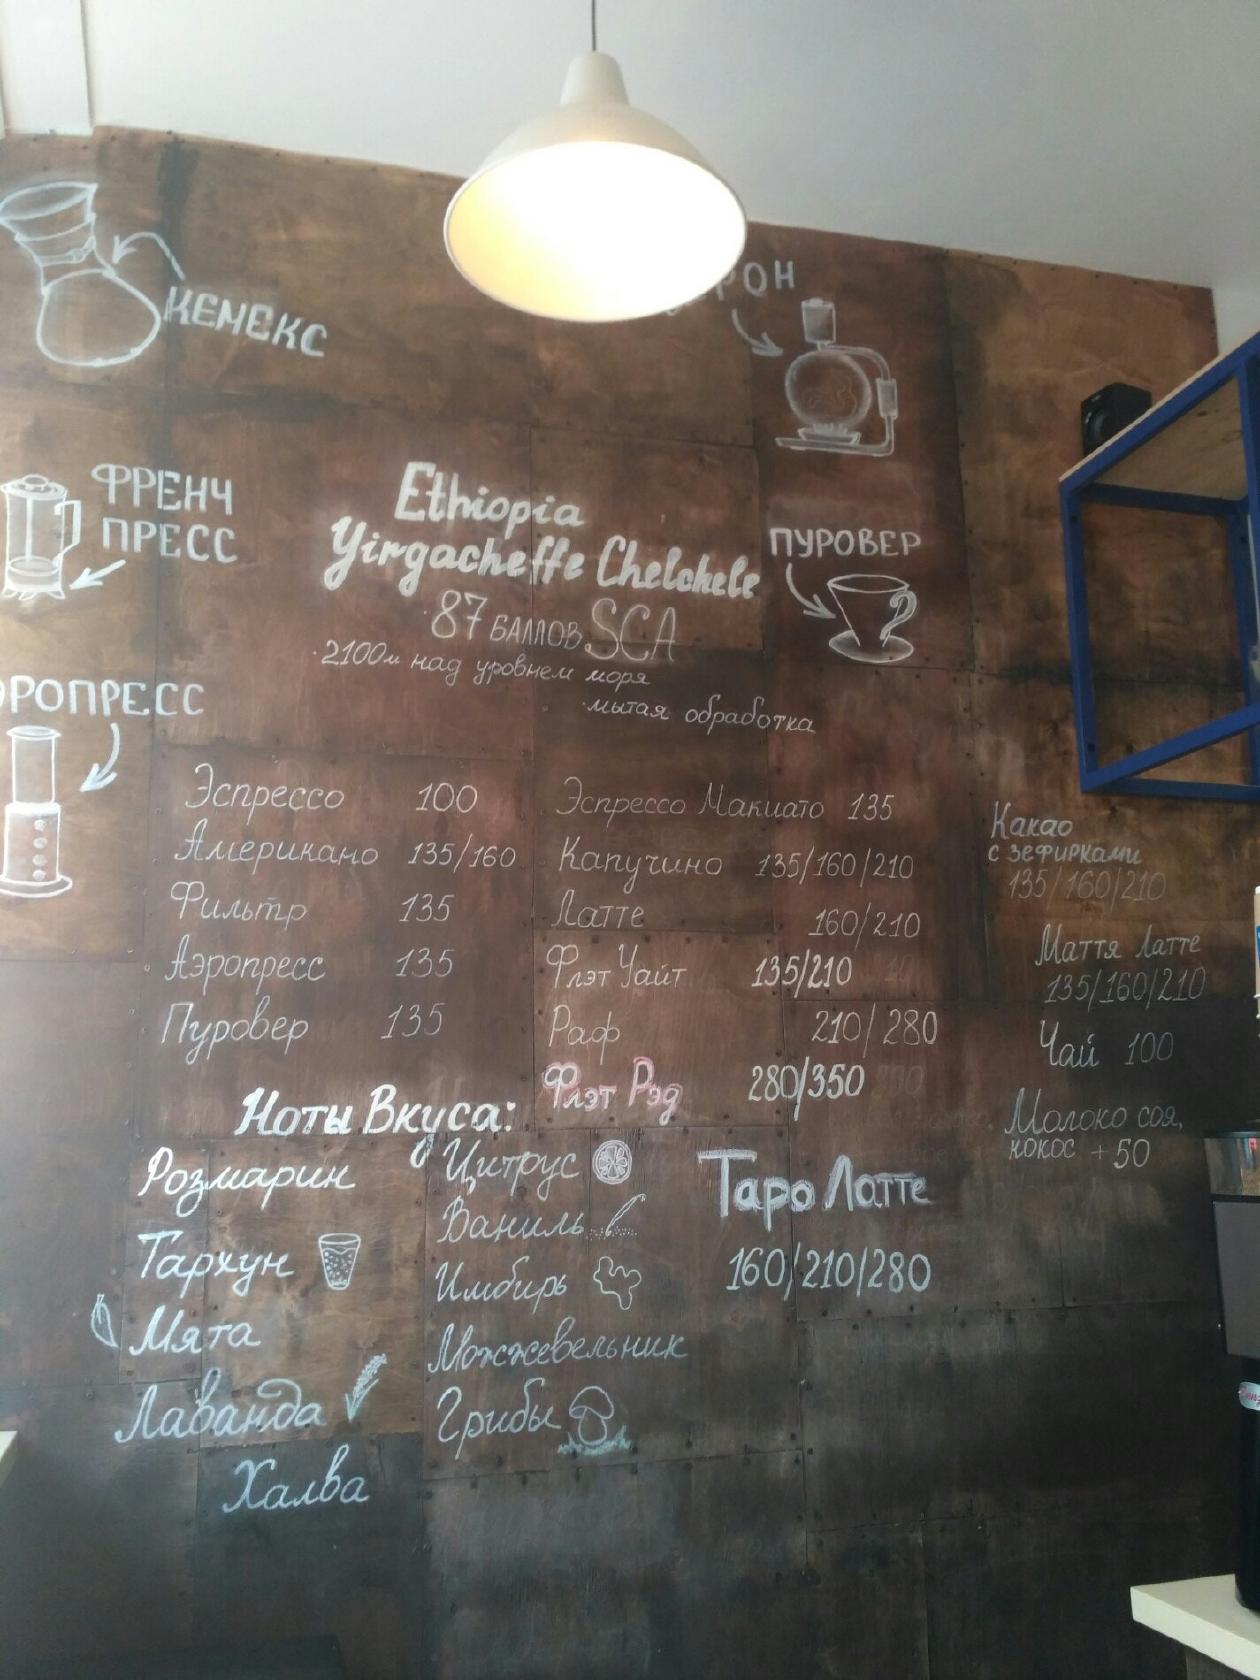 КЕМЕКС
ФРЕНЧ
ПРЕСС
Ethiopia
Yirgacheffe Chelchele
·87 БАЛЛОВ SCA
·2100м над уровнем моря
·мытая обработка
ПУРОВЕР
Эспрессо 100
Американо 135/160
Фильтр 135
Аэропресс 135
Пуровер 135
Эспрессо Макиато 135
Капучино 135/160/210
Латте 160/210
Флэт Уайт 135/210
Раф 210/280
Флэт Рэд 280/350
Какао
с зефирками
135/160/210
Маття Латте
135/160/210
Чай 100
Молоко соя,
кокос +50
Ноты Вкуса:
Розмарин
Тархун
Мята
Лаванда
Халва
Цитрус
Ваниль
Имбирь
Можжевельник
Грибы
Таро Латте
160/210/280